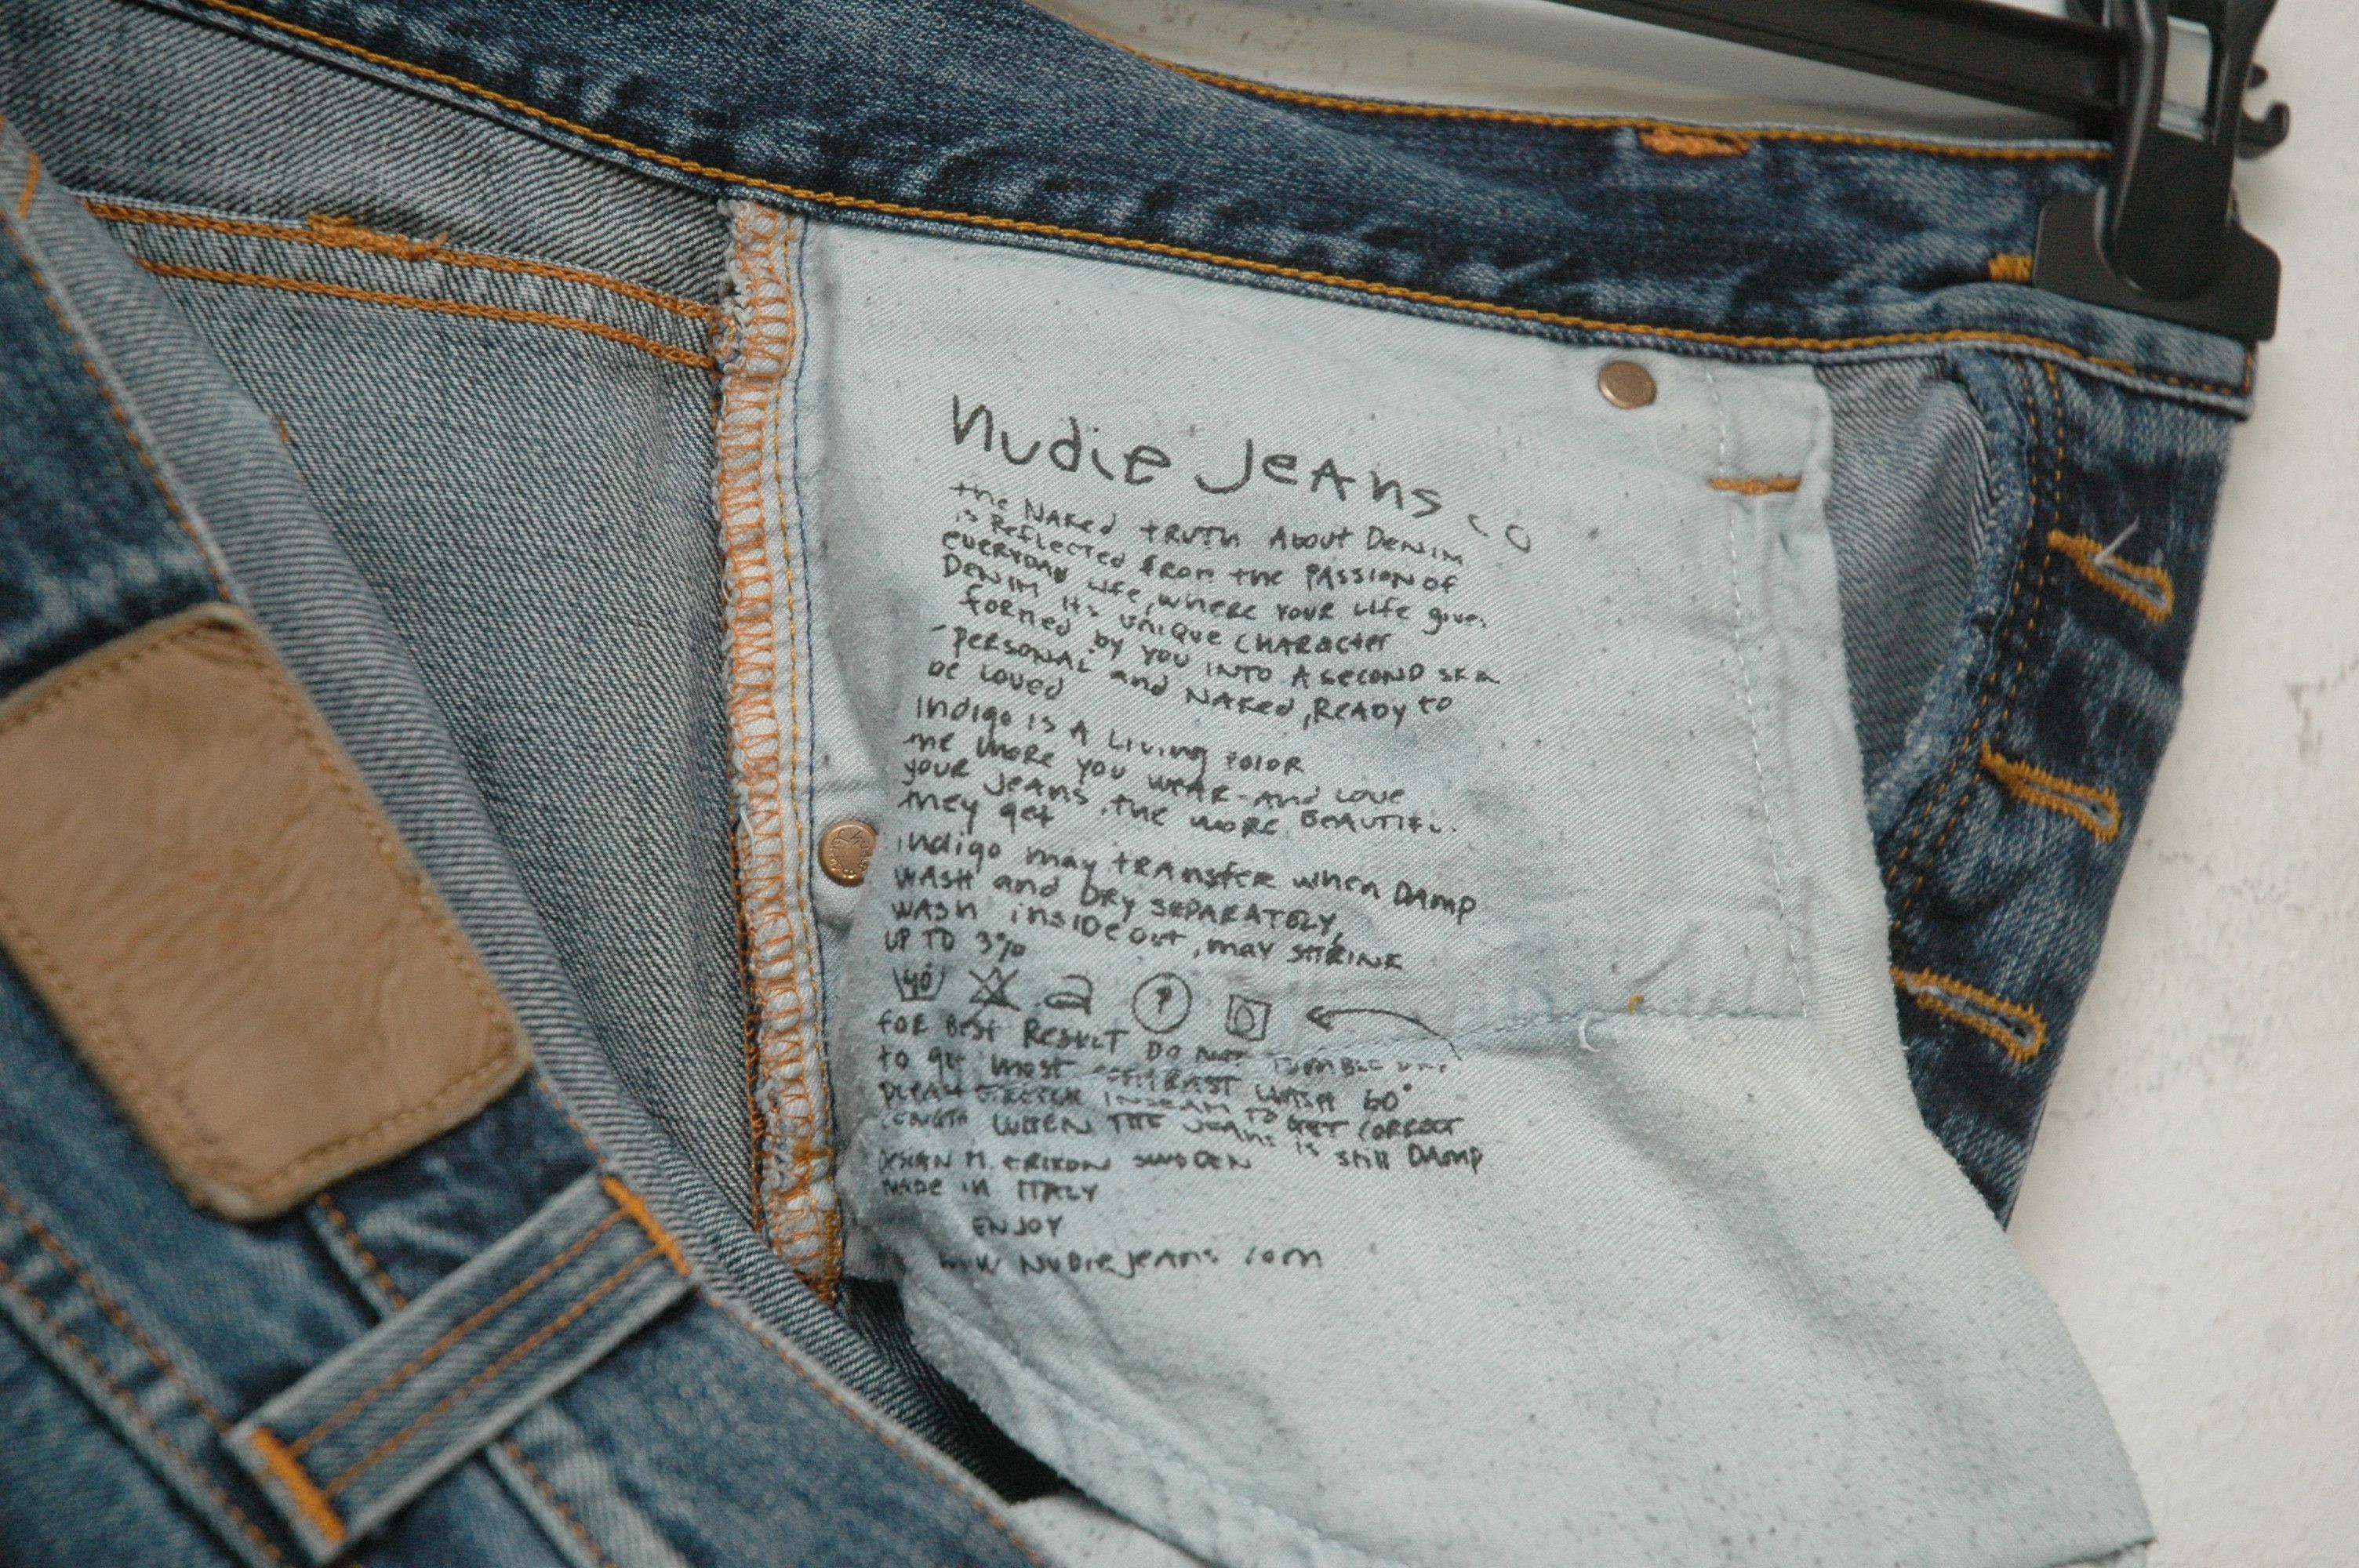 nudie Jeans co
the NAKed tRUTh About DENIM
is ReflECted from the PASSION of
eveRYDAY Life, wheRE YOUR Life gives
DENIM Its UniQUE CHARActer
formed by you INTO A SECOND SKIn
-PERSONAL and NAKed, READY to
BE LOVED
Indigo IS A Living COLOR
the more you WEAR-and Love
your JEAns, the more BEAUTIFUL
they get
Indigo may tRAnsfER when DAmp
WASH and DRy SEPARATELY,
WASh insiDe out, may SHRINK
UP TO 3%
40 P
FOR BESt RESULT DO NOT TUMBLE DRY
to get most CONTRAST WASH 60°
PLEASE STRETCH INSEAM TO GET CORRECT
LENGTH WHEN THE JEAnS IS Still DAmp
DESIGN M. ERIXON SWEDEN
MADE IN ITALY
ENJOY
www NUDIEJEANS COM